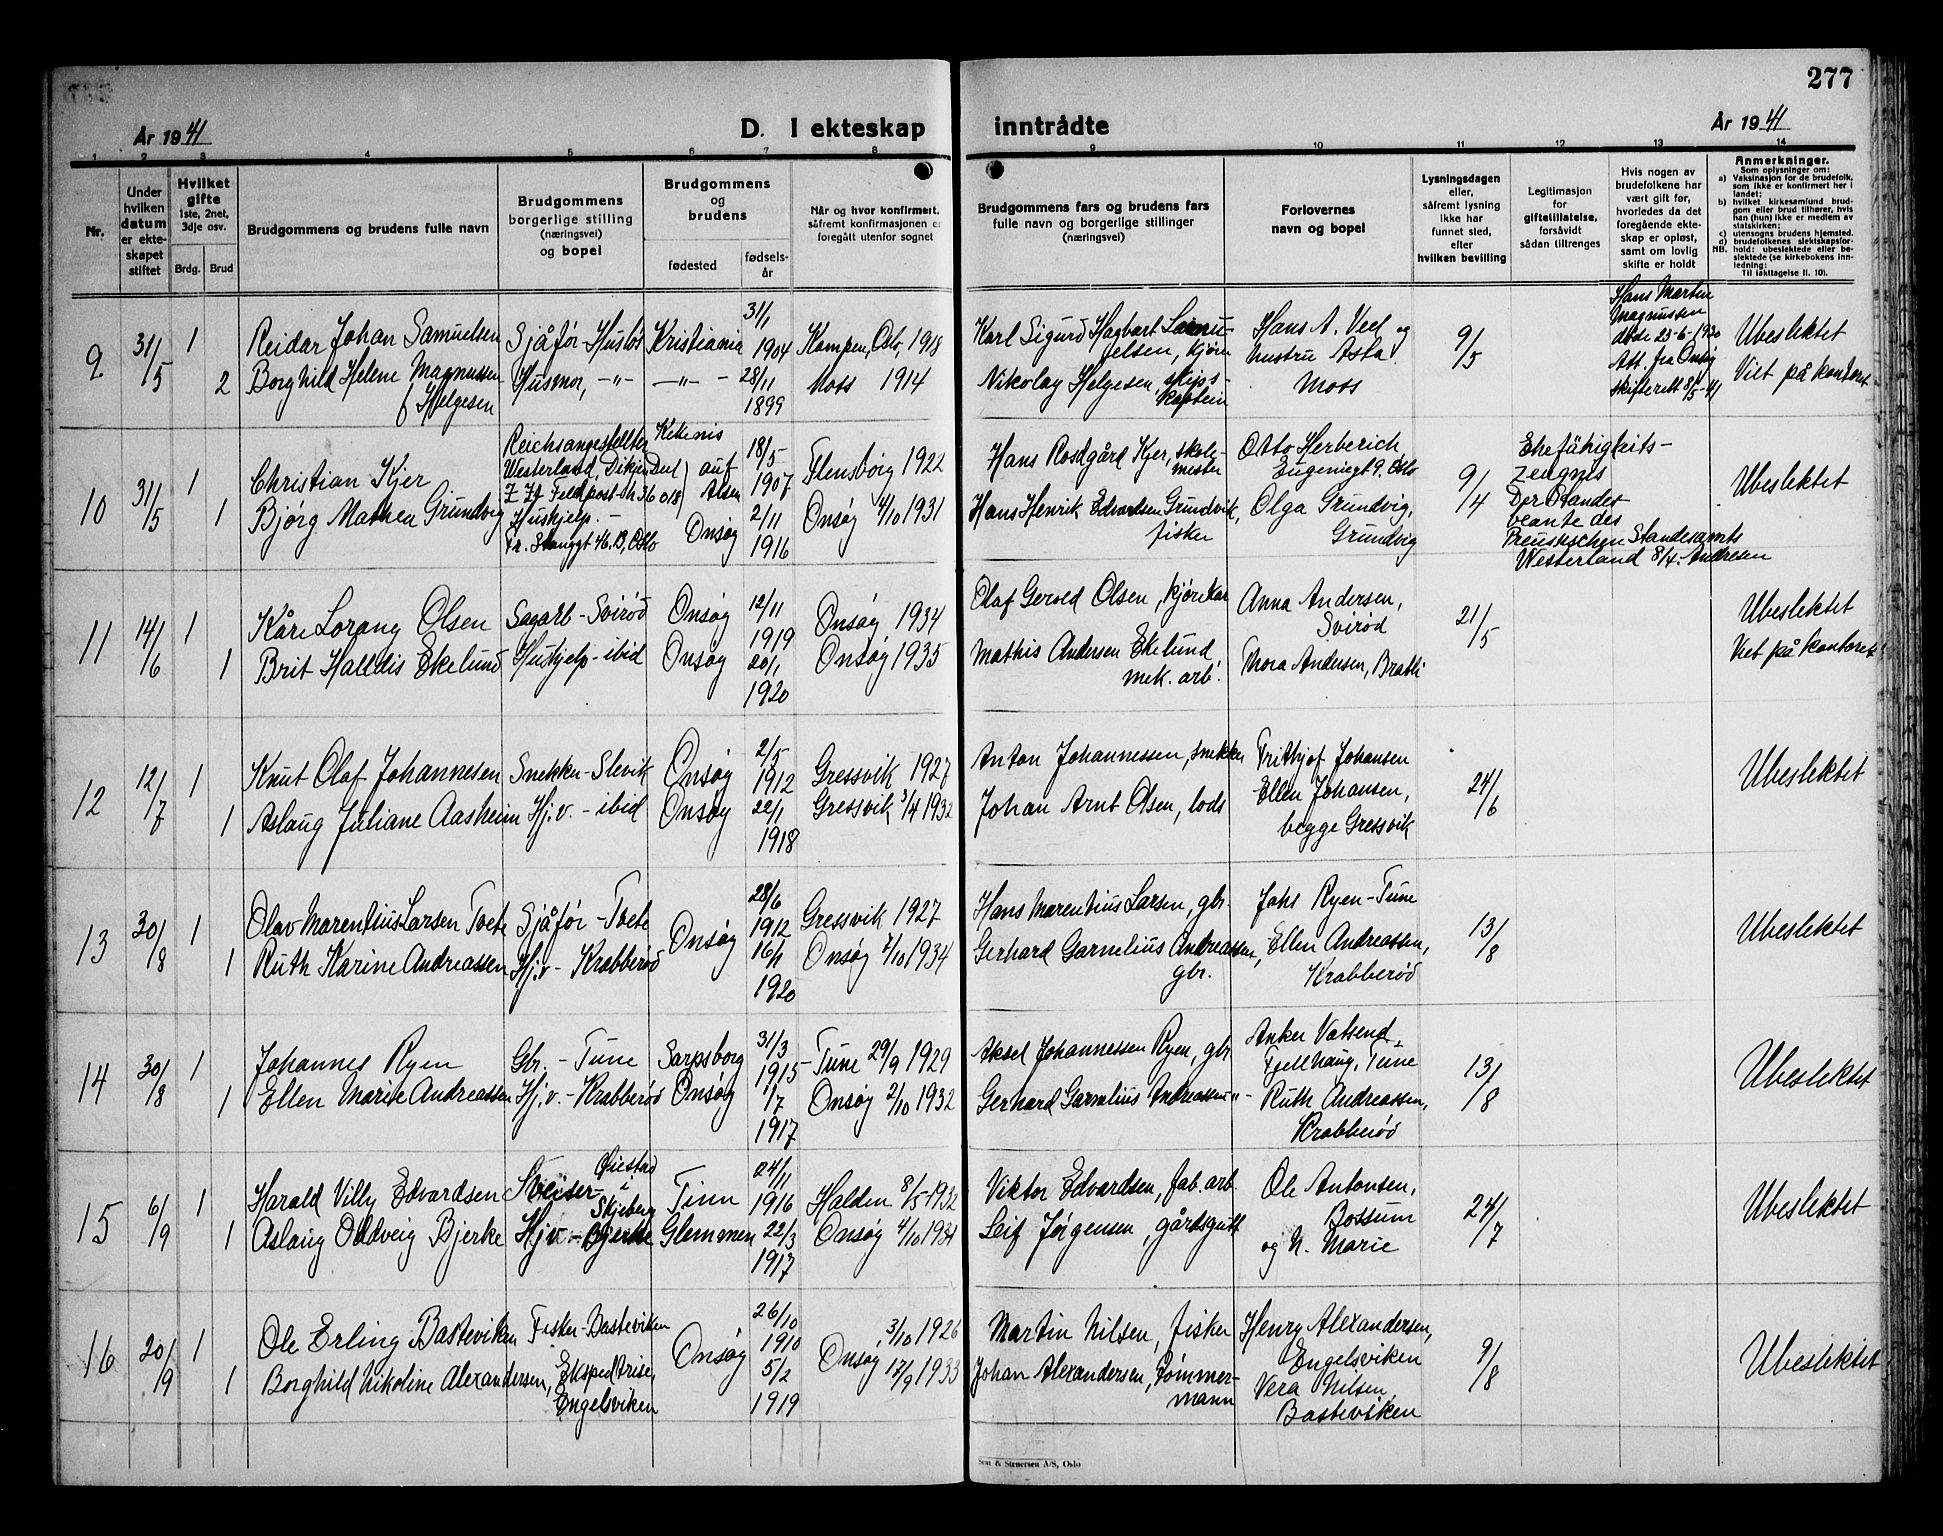 277
År 1941
D. I ekteskap inntrådte
År 1941
1 2 3 4 5 6 7 8 9 10 11 12 13 14
Nr.
Under
hvilken
datum
er ekte-
skapet
stiftet
Hvilket
gifte
1ste, 2net,
3dje osv.
Brdg. Brud
Brudgommens og brudens fulle navn
Brudgommens
borgerlige stilling
(næringsvei)
og bopel
Brudgommens
og
brudens
fødested
fødsels-
år
Når og hvor konfirmert,
såfremt konfirmasjonen er
foregått utenfor sognet
Brudgommens fars og brudens fars
fulle navn og borgerlige stillinger
(næringsvei)
Forlovernes
navn og bopel
Lysningsdagen
eller,
såfremt lysning
ikke har
funnet sted,
efter
hvilken bevilling
Legitimasjon
for
giftetillatelse,
forsåvidt
sådan tiltrenges
Hvis nogen av
brudefolkene har
vært gift før,
hvorledes da det
foregående ekte-
skap er opløst,
samt om lovlig
skifte er holdt
Anmerkninger.
Som oplysninger om:
a) Vaksinasjon for de brudefolk,
som ikke er konfirmert her i
landet;
b) hvilket kirkesamfund brud-
gom eller brud tilhører, hvis
han (hun) ikke er medlem av
statskirken;
c) utensogns brudens hjemsted.
d) brudefolkenes slektskapsfor-
NB. hold: ubeslektede eller be-
slektede (se kirkebokens inn-
ledning:
Til iakttagelse II. 10).
9
31/5
1
2
Reidar Johan Samuelsen
Borghild Helene Magnussen
f Helgesen
Sjåfør - Husløs
Husmor, -"-
Kristiania
-"-
31/1
1904
28/11
1899
Kampen, Oslo, 1918
Moss 1914
Karl Sigurd Hagbart Samu-
elsen, kjørn
Nikolay Helgesen, skips-
kaptein
Hans A. Veel og
hustru Asta
Moss
9/5
Hans Martin
Magnussen
døde 23-6-1930
Att. fra Onsøy
skifterett 8/5-41
Ubeslektet
Viet på kontoret
10
31/5
1
1
Christian Kjer
Bjørg Mathea Grundvig
Reichsangestellter
Westerland,
Feldpost Nr. 36018
Huskjelp. -
Fr. Stanggt 46.B, Oslo
Kekenis
auf
Alsen
Onsøy
18/5
1907
2/11
1916
Flensborg 1922
Onsøy 4/10 1931
Hans Rosdgård Kjer, skole-
mester
Hans Henrik Edvardsen Grundvik,
fisker
Otto Herberich,
Eugeniegt 9. Oslo
Olga Grundvig,
Grundvig
9/4
Ehefähigkeits-
zeugnis
Der Standes-
beamte des
Preussischen Standesamts
Westerland 8/4. Andresen
Ubeslektet
11
14/6
1
1
Kåre Lorang Olsen
Brit Halldis Ekelund
Sagarb - Svirød
Huskjelp - ibid
Onsøy
Onsøy
12/11
1919
20/1
1920
Onsøy 1934
Onsøy 1935
Olaf Gerold Olsen, kjørekar
Mathis Andersen Ekelund
mek. arb.
Anna Andersen,
Svirød
Thora Andersen, Bratli
21/5
Ubeslektet
Viet på kontoret
12
12/7
1
1
Knut Olaf Johannesen
Aslaug Juliane Aasheim
Snekker - Slevik
Hj.v. - ibid
Onsøy
Onsøy
2/5
1912
22/1
1918
Gressvik 1927
Gressvik 3/4 1932
Anton Johannessen, snekker
Johan Arnt Olsen, lods
Frithjof Johansen
Ellen Johansen,
begge Gressvik
24/6
Ubeslektet
13
30/8
1
1
Olav Marentius Larsen Tvete
Ruth Karine Andreassen
Sjåfør - Tvete
Hj.v - Krabberød
Onsøy
28/6
1912
16/1
1920
Gressvik 1927
Onsøy 7/10 1934
Hans Marentius Larsen, gbr.
Gerhard Garnelius Andreassen,
gbr.
Johs Ryen - Tune
Ellen Andreassen,
Krabberød
13/8
Ubeslektet
14
30/8
1
1
Johannes Ryen
Ellen Marie Andreassen
Gbr. - Tune
Hj.v. - Krabberød
Sarpsborg
Onsøy
31/3
1915
1/7
1917
Tune 29/9 1929
Onsøy 2/10 1932
Aksel Johannessen Ryen, gbr
Gerhard Garnelius Andreassen -"-
Anker Vatsend,
Fjellhaug, Tune
Ruth Andreassen,
Krabberød
13/8
Ubeslektet
15
6/9
1
1
Harald Villy Edvardsen
Aslaug Oddveig Bjerke
Sveiser - Øiestad
i
Skjeberg
Hjv. - Bjerke
Tinn
Glemmen
24/11
1916
22/3
1917
Halden 8/5-1932
Onsøy 4/10 1931
Viktor Edvardsen, fab. arb.
Leif Jørgensen, gårdsgutt
Ole Antonsen,
Bossum
og N. Marie
24/7
Ubeslektet
16
20/9
1
1
Ole Erling Basteviken
Borghild Nikoline Alexandersen,
Fisker - Basteviken
Ekspeditrise,
Engelsviken
Onsøy
26/10
1910
5/2
1919
Onsøy 3/10 1926
17/9 1933
Martin Nilsen, fisker
Johan Alexandersen, tømmer-
mann
Henry Alexandersen,
Engelsviken
Vera Nilsen,
Basteviken
9/8
Ubeslektet
Sem & Stenersen A/S, Oslo